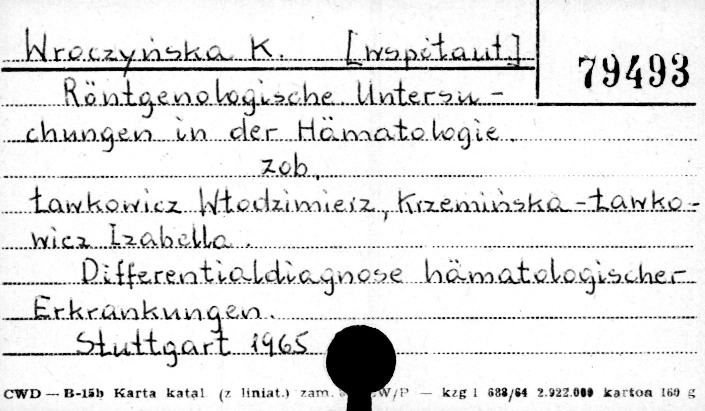 Wroczyńska K. [wspótaut.]
79493
Röntgenologische Untersu-
chungen in der Hämatologie.
zob.
Ławkowicz Włodzimierz, Krzemińska-Ławko-
wicz Izabella.
Differentialdiagnose hämatologischer
Erkrankungen.
Stuttgart 1965
CWD — B-15b Karta katal. (z liniat.) zam. W/P — kzg 1 688/64 2.922.000 karton 160 g